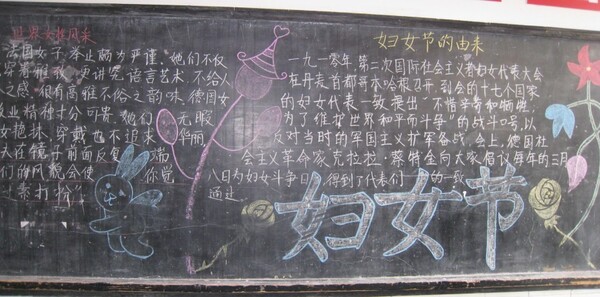 世界女性风采
法国女子,举止颇为严谨。她们不仅
穿着雅致,更讲究语言艺术,不给人
之感,很有高雅不俗之韵味。德国女
敬业精神十分可贵。她们 无暇
女艳抹,穿戴也不追求 华丽,
在镜子前面反复 端
们的风貌会使 你觉
素打扮”
妇女节的由来
一九一〇年,第二次国际社会主义者妇女代表大会
在丹麦首都哥本哈根召开,到会的十七个国家
的妇女代表一致提出“不惜辛劳和牺牲,
为了维护世界和平而斗争”的战斗口号,以
反对当时的军国主义扩军备战。会上,德国社
会主义革命家克拉拉·蔡特金向大家倡议每年的三月
八日为妇女斗争日,得到了代表们 的一致
通过。
妇女节